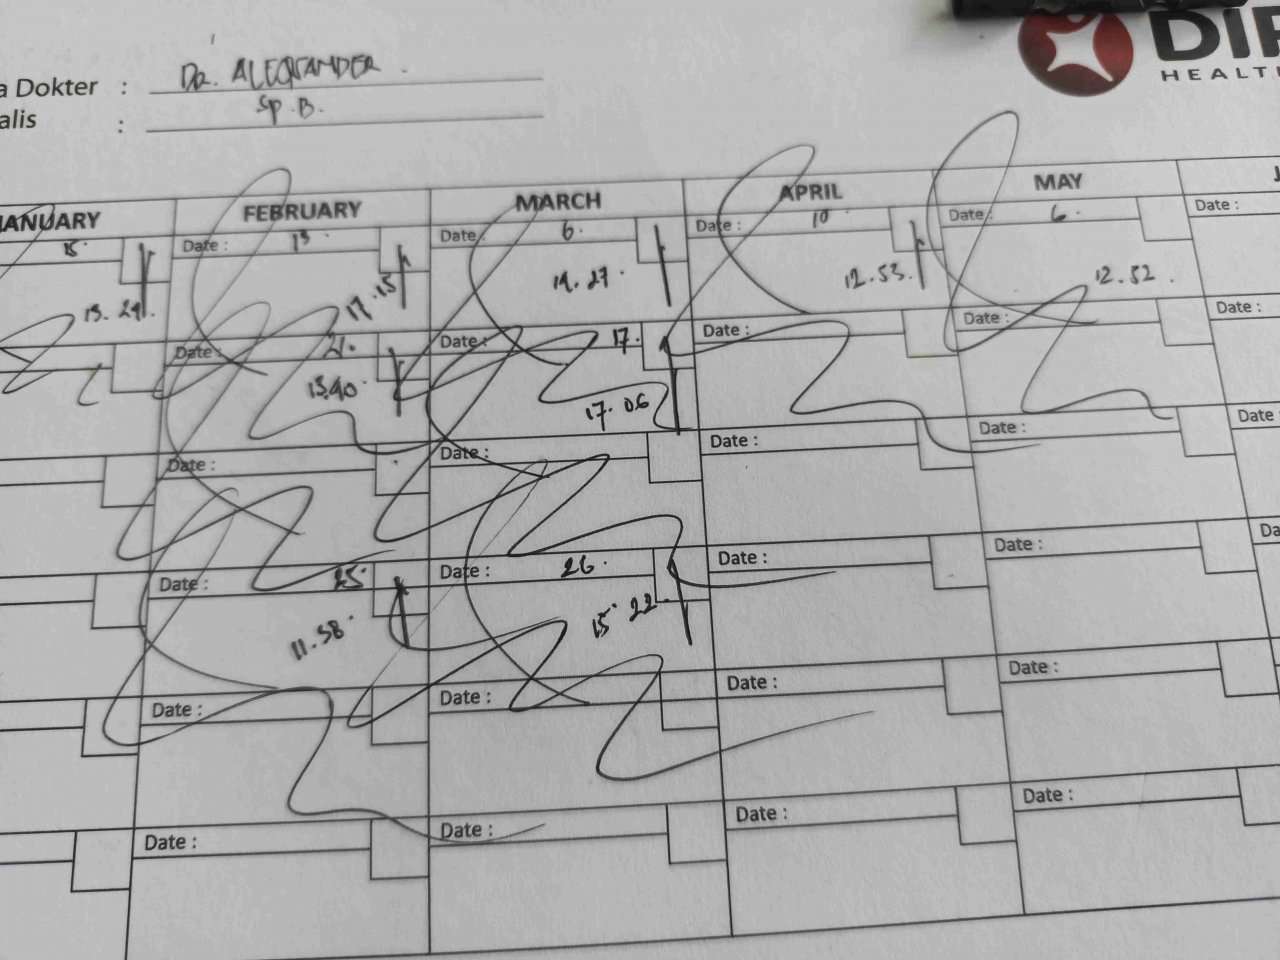 a Dokter : Dr. ALEQXANDER .
alis : Sp. B.
DIP
HEALT
JANUARY FEBRUARY MARCH APRIL MAY J
15. Date : 13 Date : 6. Date : 10. Date : 6. Date :
17.15 19.27. 12.53. 12.52.
Date : 21. Date : 17. Date : Date : Date :
17.06
Date : Date : Date : Date : Date
Date : 25. Date : 26. Date : Date : Da
11.38. 15.22.
Date : Date : Date : Date :
Date : Date : Date : Date :